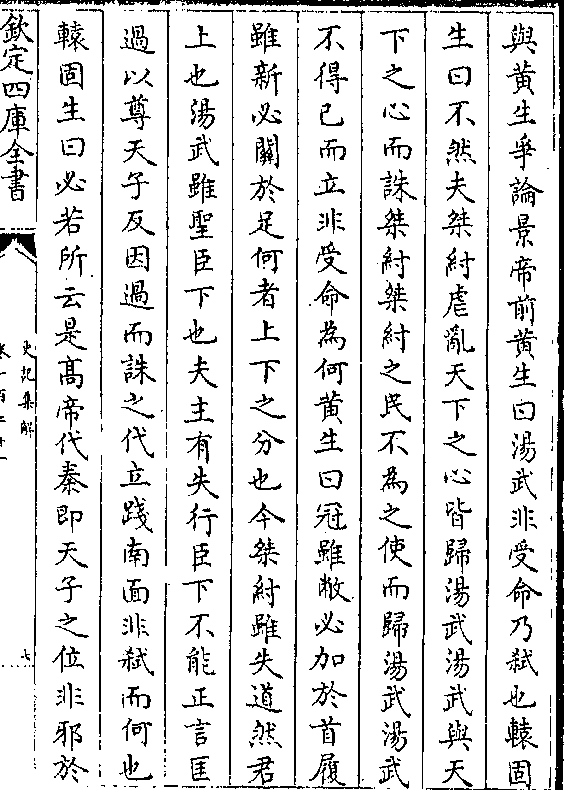 與黄生爭論景帝前黄生曰湯武非受命乃弑也轅固
生曰不然夫桀紂虐亂天下之心皆歸湯武湯武與天
下之心而誅桀紂桀紂之民不為之使而歸湯武湯武
不得已而立非受命為何黄生曰冠雖敝必加於首履
雖新必關於足何者上下之分也今桀紂雖失道然君
上也湯武雖聖臣下也夫主有失行臣下不能正言匡
過以尊天子反因過而誅之代立踐南面非弑而何也
轅固生曰必若所云是髙帝代秦即天子之位非邪於
欽定四庫全書
史記集解
七